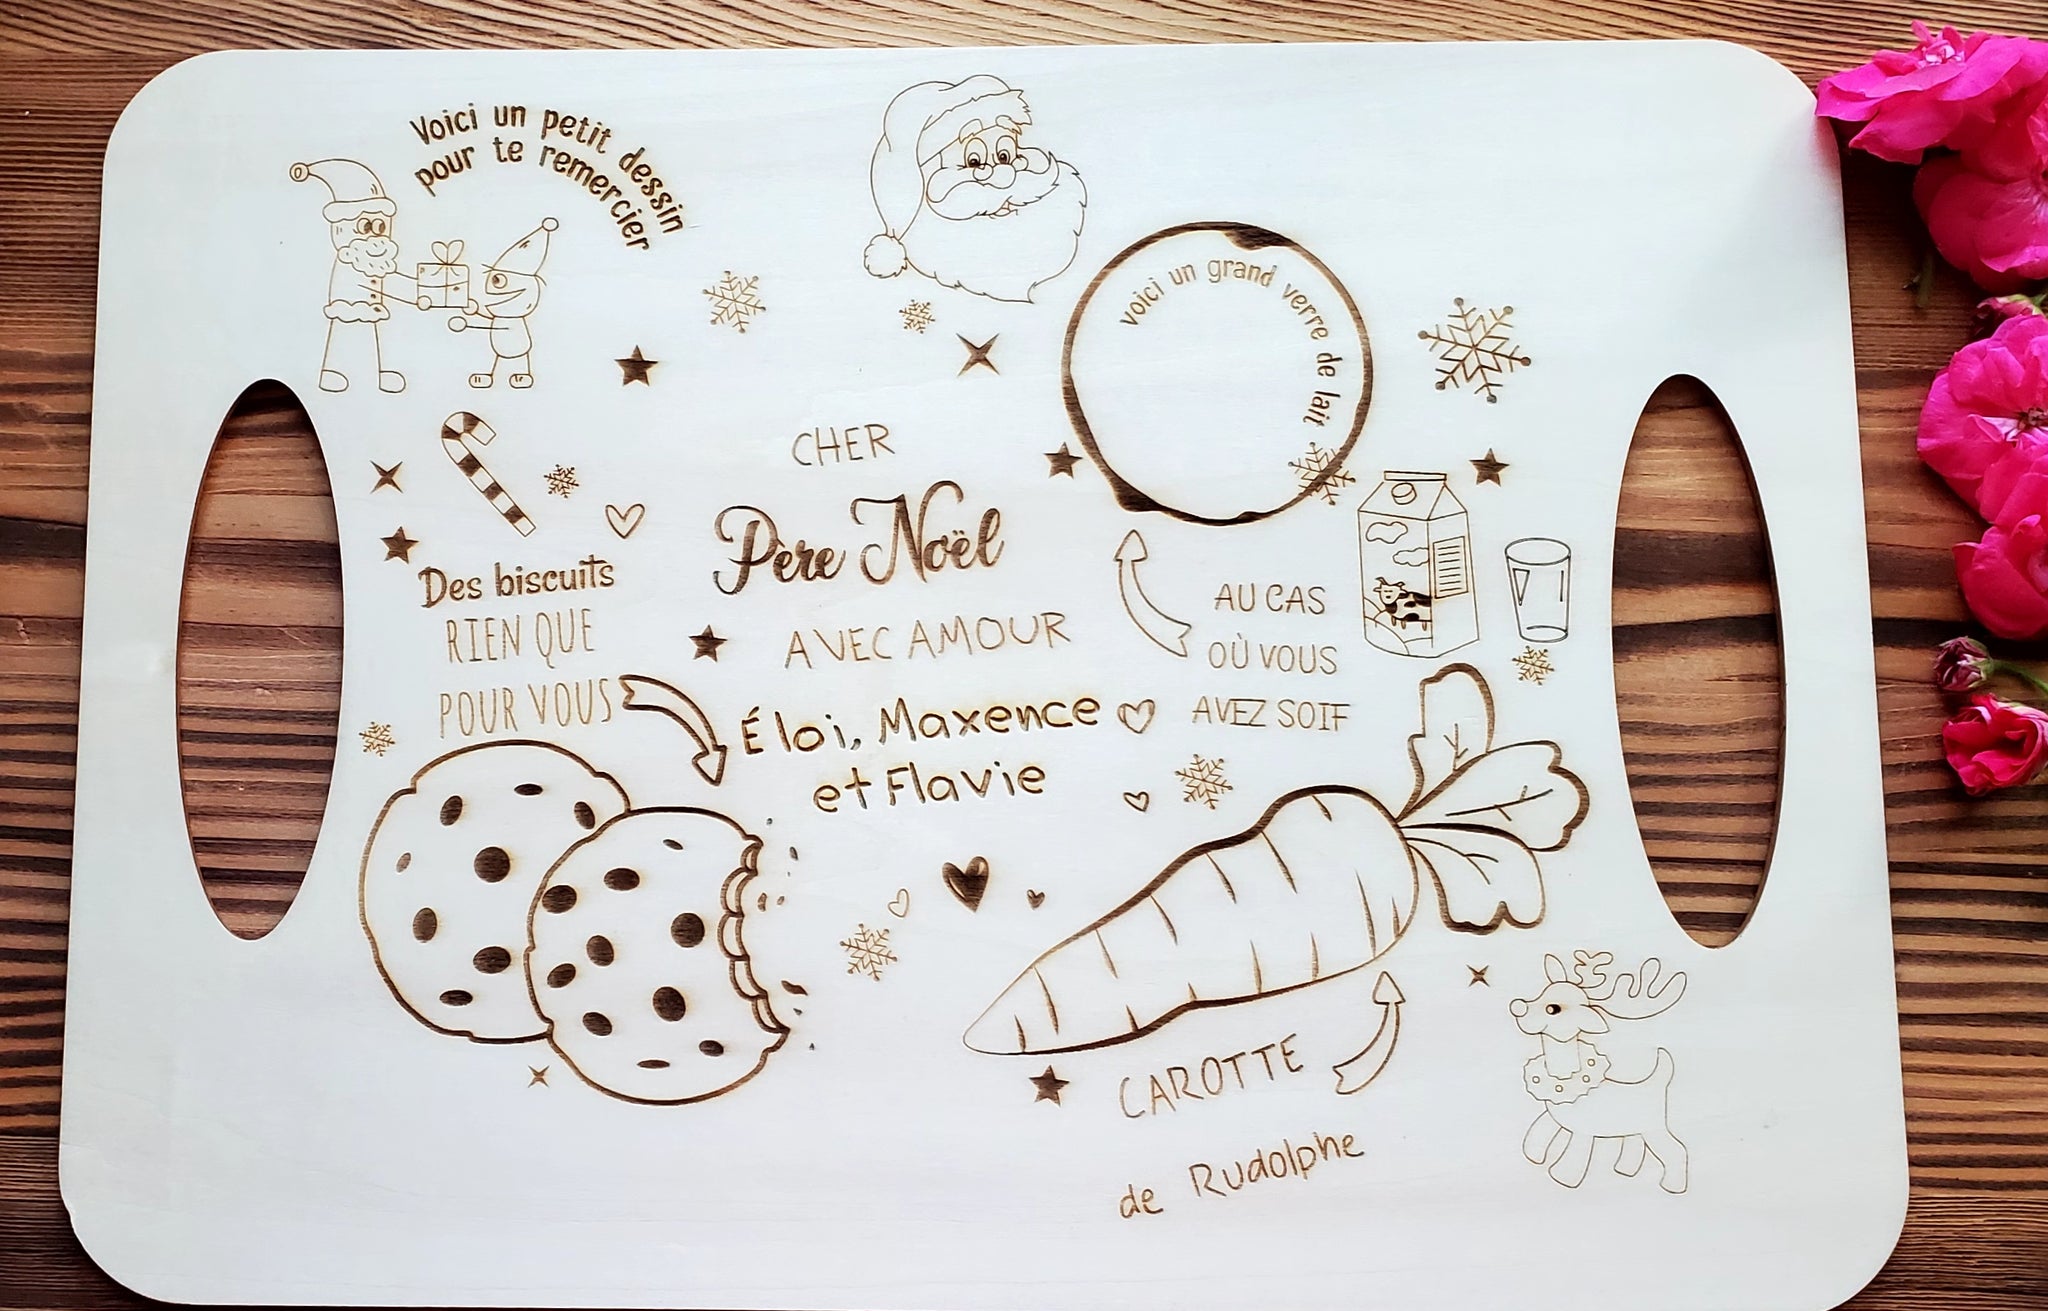 Voici un petit dessin
pour te remercier
voici un grand verre de lait
CHER
Père Noël
AVEC AMOUR
Éloi, Maxence
et Flavie
Des biscuits
RIEN QUE
POUR VOUS
AU CAS
OÙ VOUS
AVEZ SOIF
CAROTTE
de Rudolphe